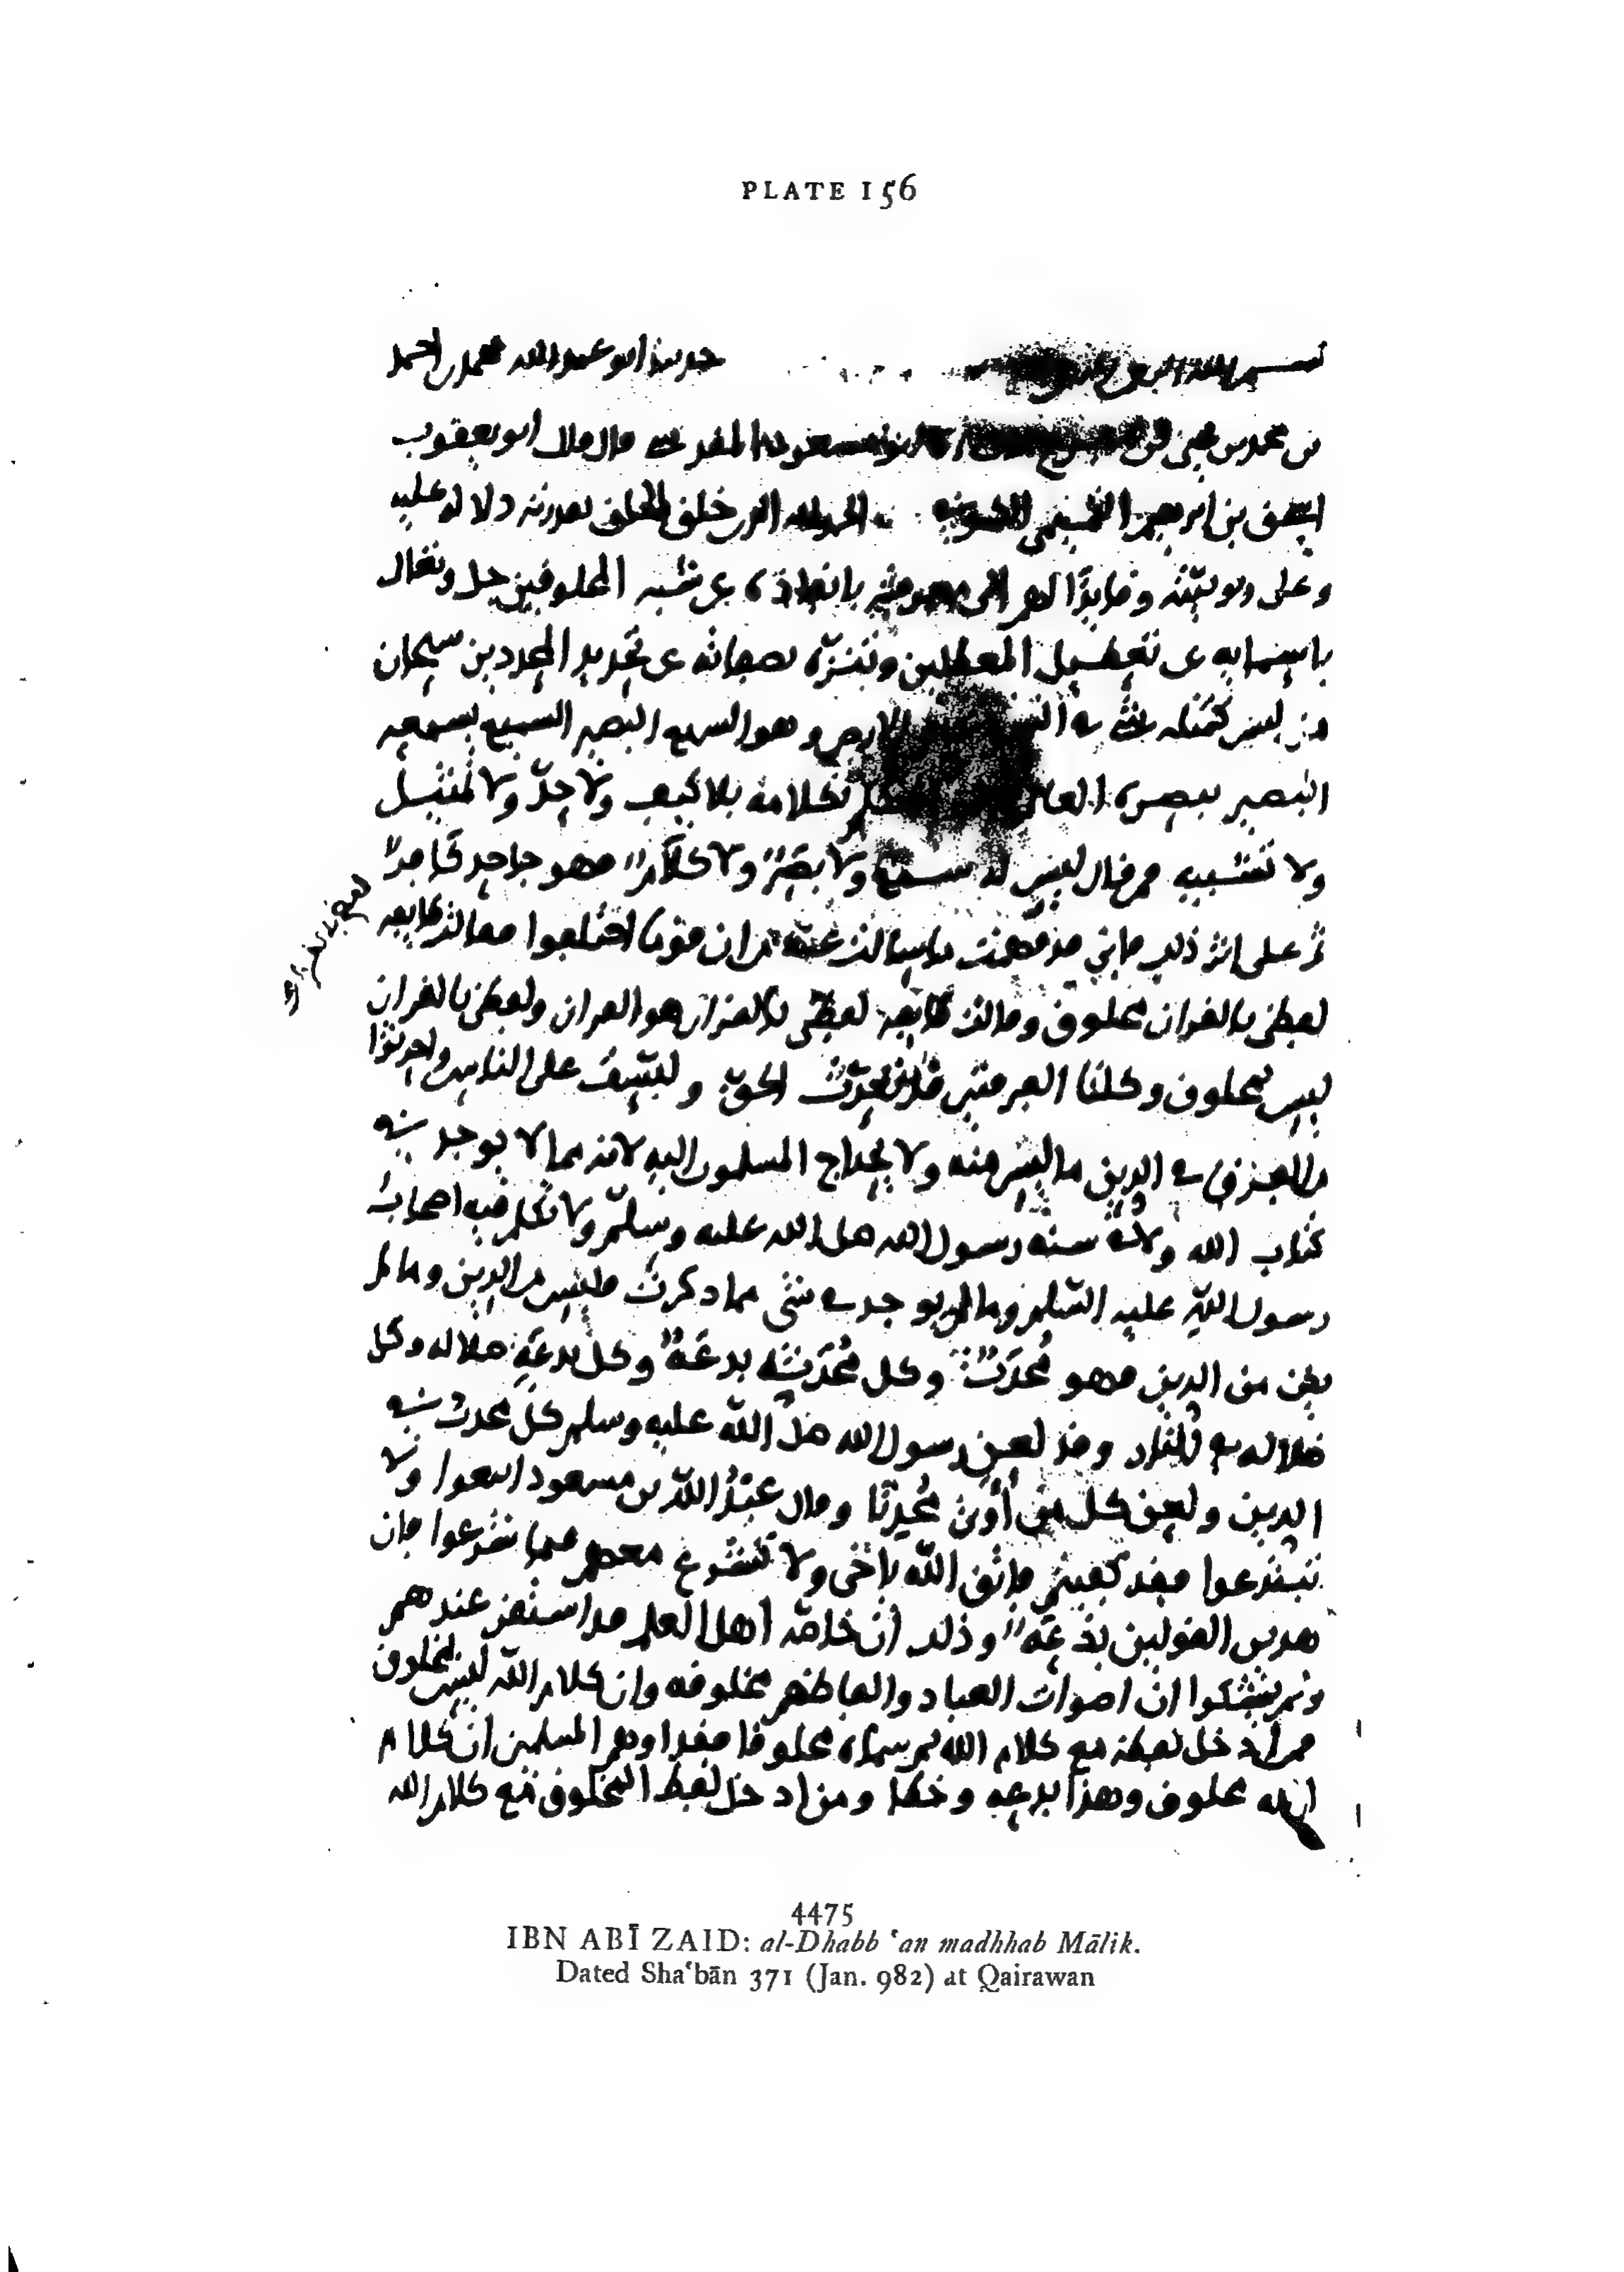 PLATE 156
بسم الله الرحمن حدثنا ابو عبد الله محمد بن احمد
بن محمد بن يحيى قال قال ابو يعقوب
اسحق بن ابرهيم الحمد لله الذي خلق الخلق بقدرته دلالة عليه
وعلى ربوبيته باتقانه عن شبه المخلوقين جل وتعالى
باسمايه عن تعطيل المعطلين وتنزه بصفاته عن تحديد المحددين سبحان
من ليس كمثله شيء في الارض وهو السميع البصير السميع بسمعه
البصير ببصره بكلامه بلا كيف ولا حد ولا تمثيل
ولا تشبيه فمن قال ليس له سمع ولا بصر ولا كلام فهو جاحد
ثم على اثر ذلك فاني قد فهمت ما سالت عنه من ان قوما اختلفوا فقالت طايفة
لفظي بالقران
لفظي بالقران مخلوق وقالت طايفة لفظي بالقران هو القران ولفظي بالقران
ليس بمخلوق وكلتا الفرقتين قد تعدت الحق ولبست على الناس واحدثوا
في الدين ما ليس منه ولا يحتاج المسلمون اليه لانه مما لا يوجد في
كتاب الله ولا في سنة رسول الله صلى الله عليه وسلم ولا تكلم فيه اصحاب
رسول الله عليه السلم وما لم يوجد في شي مما ذكرت فليس من الدين وما لم
يكن من الدين فهو محدث وكل محدثة بدعة وكل بدعة ضلالة وكل
ضلالة في النار وقد لعن رسول الله صلى الله عليه وسلم كل محدث في
الدين ولعن كل من أوى محدثا وقال عبد الله بن مسعود اتبعوا ولا
تبتدعوا فقد كفيتم فاتق الله ياخي ولا تشرع معهم فيما شرعوا فان
هذين القولين بدعة وذلك أن عامة اهل العلم قد استقر عندهم
ولم يشكوا ان اصوات العباد والفاظهم مخلوقة وان كلام الله ليس بمخلوق
فمن ادخل لفظه مع كلام الله ثم سماه مخلوقا فقد اوهم المسلمين ان كلام
الله مخلوق وهذا بدعة وخطا ومن ادخل لفظ المخلوق مع كلام الله
4475
IBN ABĪ ZAID: al-Dhabb ʿan madhhab Mālik.
Dated Shaʿbān 371 (Jan. 982) at Qairawan